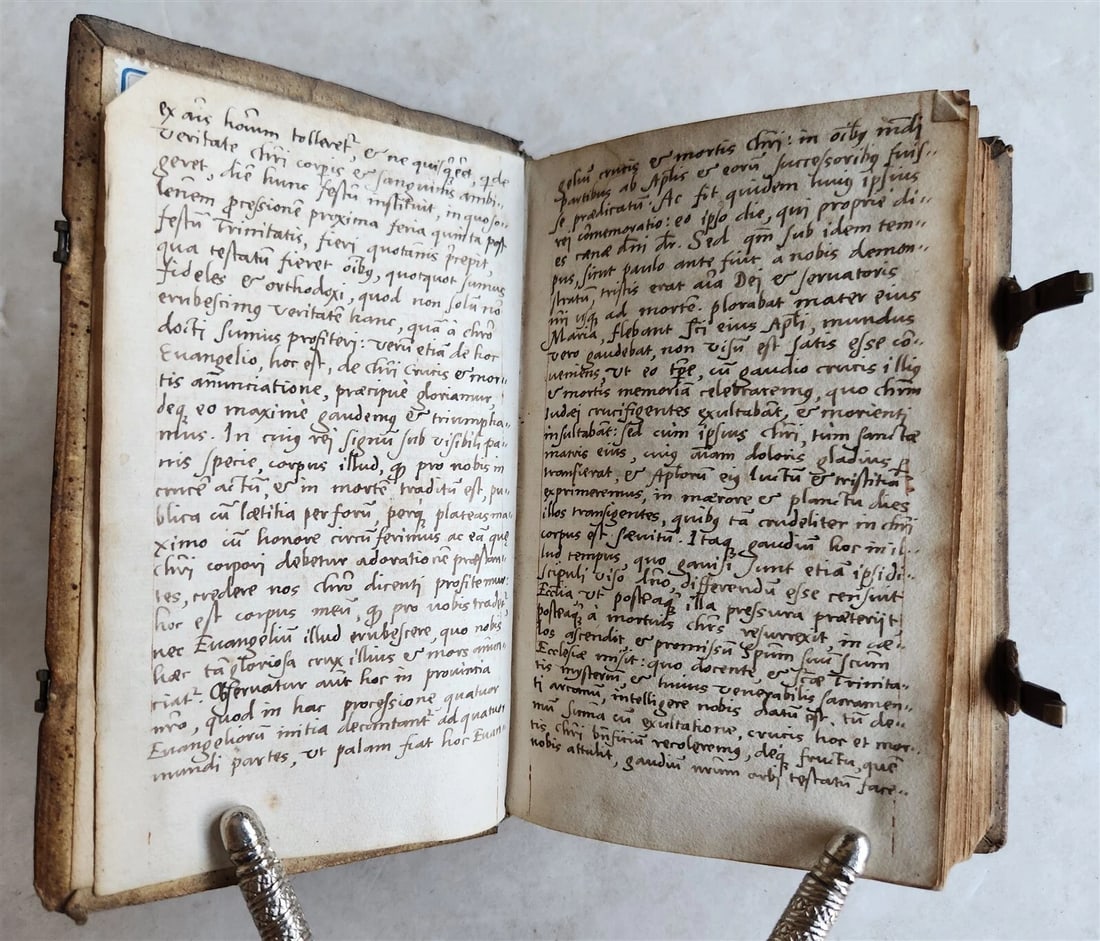 ex aīs hoīum tolleret᷑, & ne quisq̃ eēt, q̣ de
veritate Chr̃i corp̃is & sanguinis ambi-
geret, diē hunc festū instituit, inquo so-
lēnem p̃cessionē proxima feria quinta post
festū Trinitatis, fieri quotānis p̃cepit,
qua testatū fieret oībꝰ, quotquot sumus
fideles & orthodoxi, quod non solū nō
erubescimꝰ veritatē hanc, quā à chr̃o
docti sumus profiterj: verū etiā de hoc
Euangelio, hoc est, de chr̃i crucis & mor-
tis añunciatione, præcipuè gloriamur,
deq; eo maximè gaudemꝰ & triumpha-
mus. In cuiꝰ rei signū sub visibili pa-
nis specie, corpus illud, qd̃ pro nobis in
crucē actū, & in mortē traditū est, pu-
blica cū lætitia per forū, perq; plateas ma-
ximo cū honore circūferimus ac ea quę
chr̃i corpori debetur adoratione præstan-
tes, credere nos chr̃o dicenti profitemur:
hoc est corpus meū, qd̃ pro vobis tradet᷑,
nec Euangeliū illud erubescere, quo nobis
hæc tā gloriosa crux illius & mors anun-
ciat᷑. Observatur aut̃ hoc in provintia
nr̃a, quod in hac processione quatuor
Euangeliorū initia decantant᷑ ad quatuor
mundi partes, vt palam fiat hoc Euan-
geliū crucis & mortis Chr̃i: in oībꝰ mūdi
partibus ab Ap̃lis & eorū successoribꝰ fuis-
se prædicatū. Ac fit quidem huiꝰ ipsius
rei cōmemoratio: eo ipso die, qui propriè di-
es cænæ dn̄i dr̃. Sed qm̃ sub idem tem-
pus, sicut paulo ante fuit à nobis demon-
stratū, tristis erat aīa Dei & servatoris
nr̃i vsq; ad mortē. plorabat mater eius
Maria, flebant Sc̃i eius Ap̃li, mundus
vero gaudebat, non visū est satis esse cō-
veniens, vt eo tp̃e, cū gaudio crucis illiꝰ
& mortis memoriā celebraremꝰ, quo chr̃m
Iudæi crucifigentes exultabāt, & morienti
insultabāt: sed cùm ipsius chr̃i, tùm sanctæ
matris eius, cuiꝰ aīam doloris gladius p̃
transierat, & Ap̃lorū eiꝰ luctū & tristitiā
exprimeremus, in mærore & planctu dies
illos transigentes, quibꝰ tā crudeliter in chr̃i
corpus est sævitū. Itaq; gaudiū hoc in il-
lud tempus, quo gavisi sunt etiā ipsi di-
scipuli viso dn̄o, differendū esse censuit
Ecclīa vt posteaq̃ illa pressura præterijt,
posteaq̃ à mortuis chr̃s resurrexit, in cæ-
los ascendit, & promissū Sp̃um suū scūm
Ecclesiæ misit: quo docente, & sc̃æ Trinita-
tis mysteriū, & huius venerabilis sacramen-
ti arcanū, intelligere nobis datū est. tū de-
mū suma cū exultatione, crucis hoc et mor-
tis chr̃i bn̄ficiū recoleremꝰ, deq; fructu, quē
nobis attulit, gaudiū nr̃um orbi testatū face-